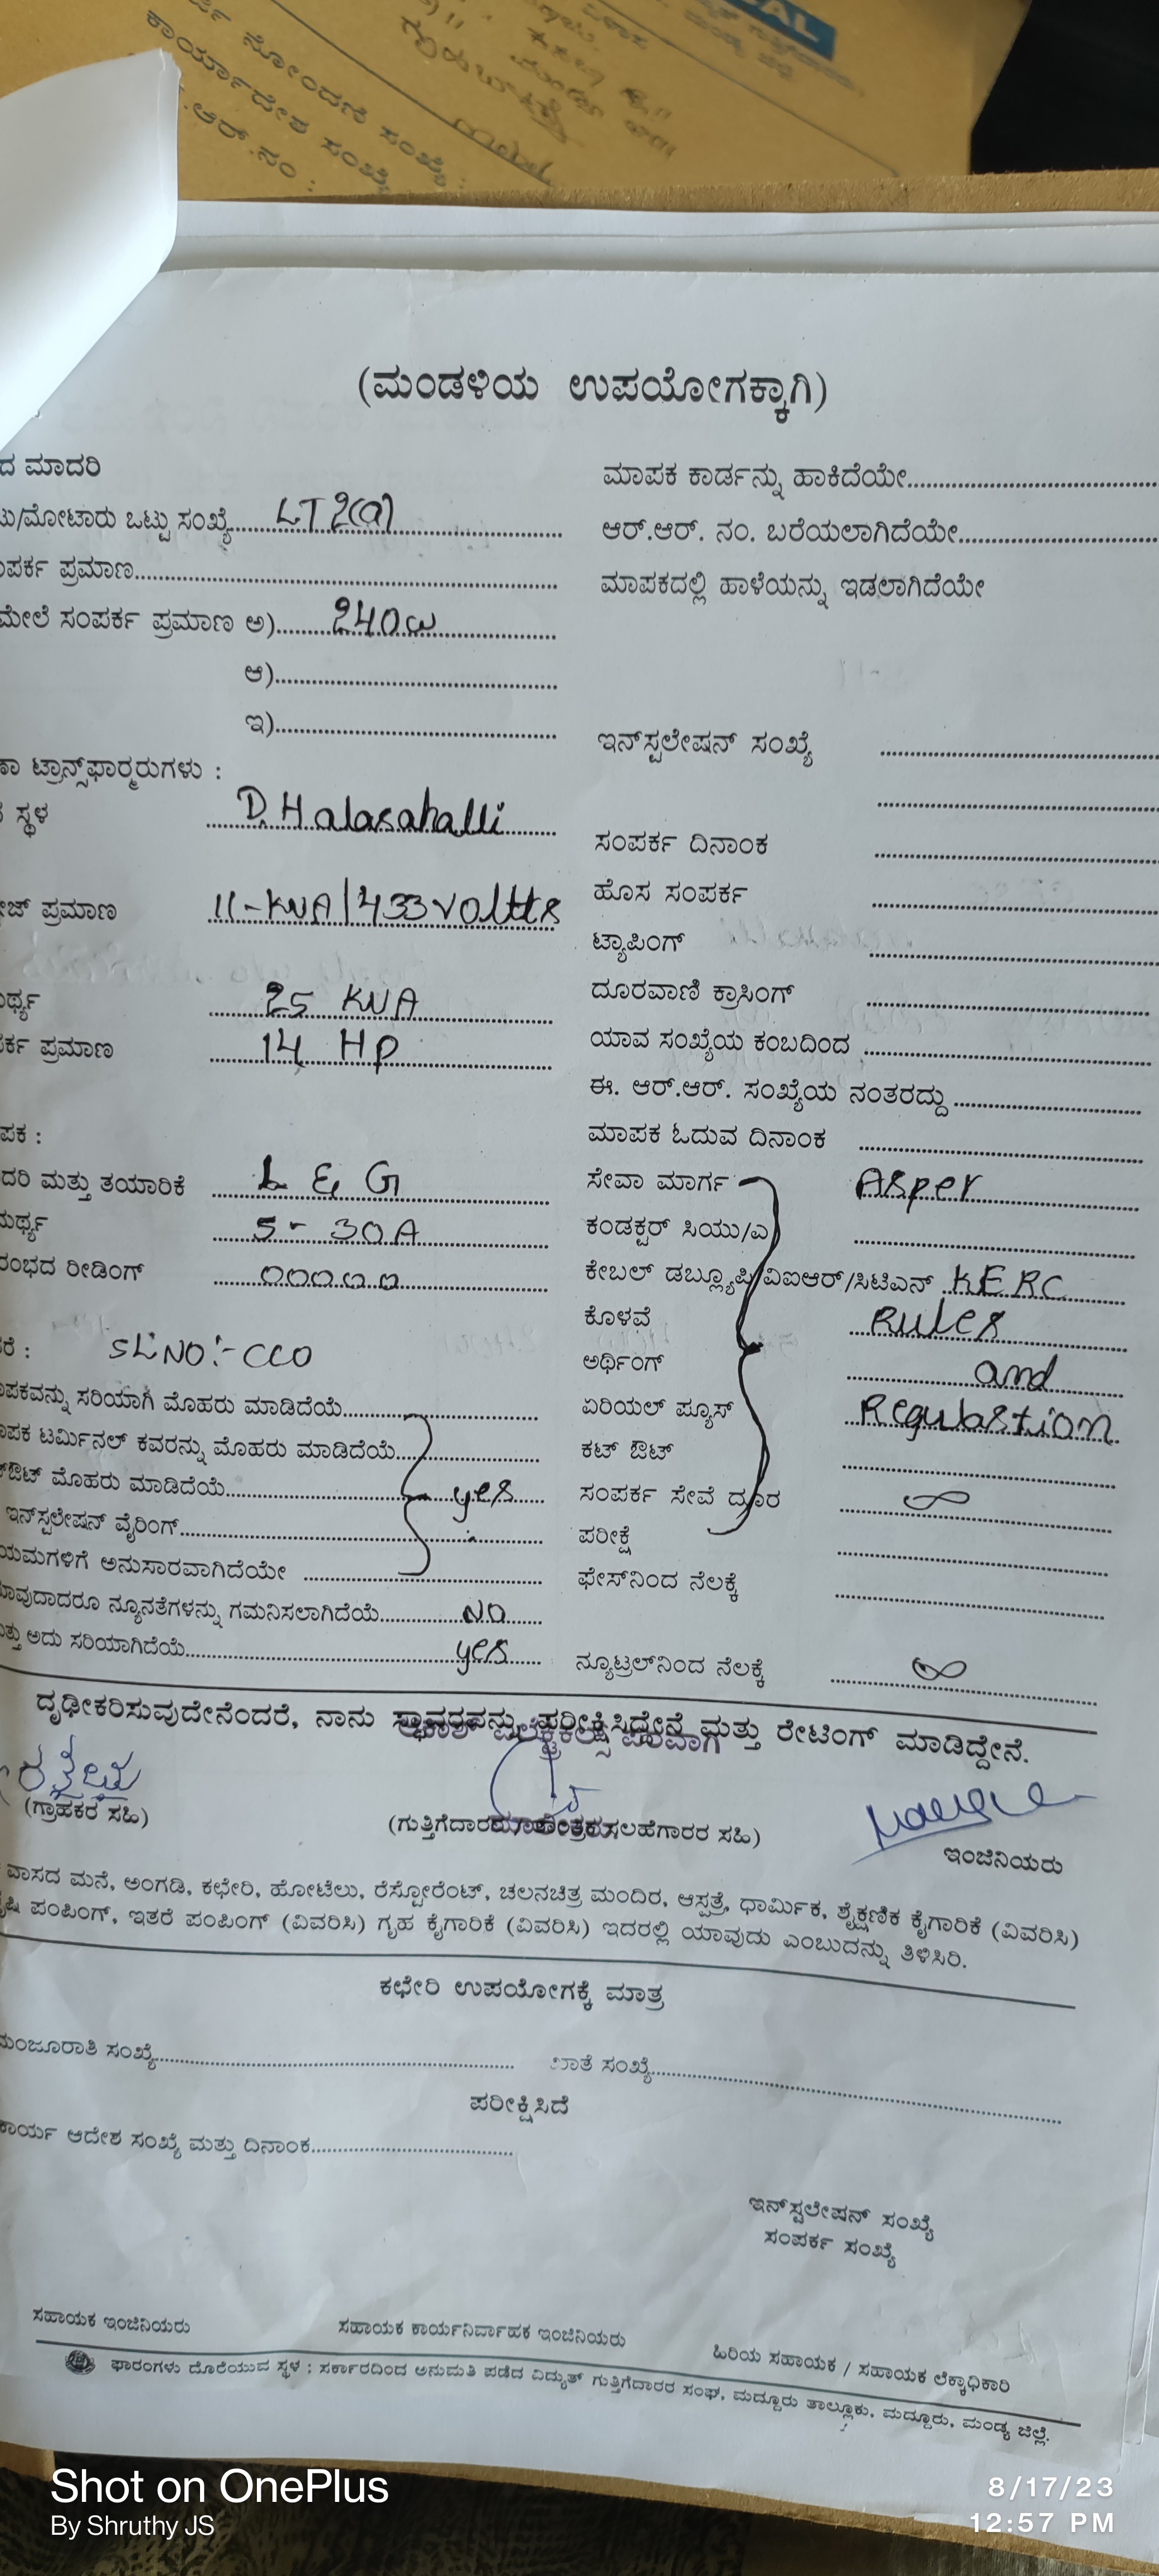 ನೋಂದಣಿ ಸಂಖ್ಯೆ:
ಕಾರ್ಯಾದೇಶ ಸಂಖ್ಯೆ
.ಆರ್.ನಂ :
(ಮಂಡಳಿಯ ಉಪಯೋಗಕ್ಕಾಗಿ)
ದ ಮಾದರಿ
ಟು/ಮೋಟಾರು ಒಟ್ಟು ಸಂಖ್ಯೆ.....LT 2(a)
ಂಪರ್ಕ ಪ್ರಮಾಣ.....
ಮೇಲೆ ಸಂಪರ್ಕ ಪ್ರಮಾಣ ಅ).....240w
ಆ).....
ಇ).....
ಣಾ ಟ್ರಾನ್ಸ್‌ಫಾರ್‍ಮರುಗಳು :
ಸ್ಥಳ D. Halasahalli
ೇಜ್ ಪ್ರಮಾಣ 11-KVA/433 voltts
ರ್ಥ್ಯ 25 KVA
ರ್ಕ ಪ್ರಮಾಣ 14 HP
ಪಕ :
ದರಿ ಮತ್ತು ತಯಾರಿಕೆ L & G
ಮರ್ಥ್ಯ 5-30A
ರಂಭದ ರೀಡಿಂಗ್ 00000
ರೆ : SL NO:-
ಾಪಕವನ್ನು ಸರಿಯಾಗಿ ಮೊಹರು ಮಾಡಿದೆಯೆ.....
ಾಪಕ ಟರ್ಮಿನಲ್ ಕವರನ್ನು ಮೊಹರು ಮಾಡಿದೆಯೆ.....
ಔಟ್ ಮೊಹರು ಮಾಡಿದೆಯೆ.....yes
ಇನ್‌ಸ್ಟಲೇಷನ್ ವೈರಿಂಗ್.....
ಯಮಗಳಿಗೆ ಅನುಸಾರವಾಗಿದೆಯೇ .....
ಾವುದಾದರೂ ನ್ಯೂನತೆಗಳನ್ನು ಗಮನಿಸಲಾಗಿದೆಯೆ.....NO
ತ್ತು ಅದು ಸರಿಯಾಗಿದೆಯೆ.....yes
ಮಾಪಕ ಕಾರ್ಡನ್ನು ಹಾಕಿದೆಯೇ.....
ಆರ್.ಆರ್. ನಂ. ಬರೆಯಲಾಗಿದೆಯೇ.....
ಮಾಪಕದಲ್ಲಿ ಹಾಳೆಯನ್ನು ಇಡಲಾಗಿದೆಯೇ
ಇನ್‌ಸ್ಟಲೇಷನ್ ಸಂಖ್ಯೆ .....
ಸಂಪರ್ಕ ದಿನಾಂಕ .....
ಹೊಸ ಸಂಪರ್ಕ .....
ಟ್ಯಾಪಿಂಗ್ .....
ದೂರವಾಣಿ ಕ್ರಾಸಿಂಗ್ .....
ಯಾವ ಸಂಖ್ಯೆಯ ಕಂಬದಿಂದ .....
ಈ. ಆರ್.ಆರ್. ಸಂಖ್ಯೆಯ ನಂತರದ್ದು .....
ಮಾಪಕ ಓದುವ ದಿನಾಂಕ .....
ಸೇವಾ ಮಾರ್ಗ Asper
ಕಂಡಕ್ಟರ್ ಸಿಯು/ಎ .....
ಕೇಬಲ್ ಡಬ್ಲ್ಯೂಪಿ/ವಿಐಆರ್/ಸಿಟಿಎಸ್ KERC
ಕೊಳವೆ Rules
ಅರ್ಥಿಂಗ್ and
ಏರಿಯಲ್ ಪ್ಯೂಸ್ Regulastion
ಕಟ್ ಔಟ್ .....
ಸಂಪರ್ಕ ಸೇವೆ ದ್ವಾರ ∞
ಪರೀಕ್ಷೆ .....
ಫೇಸ್‌ನಿಂದ ನೆಲಕ್ಕೆ .....
ನ್ಯೂಟ್ರಲ್‌ನಿಂದ ನೆಲಕ್ಕೆ ∞
ದೃಢೀಕರಿಸುವುದೇನೆಂದರೆ, ನಾನು ಸ್ಥಾವರವನ್ನು ಪರೀಕ್ಷಿಸಿದ್ದೇನೆ ಮತ್ತು ರೇಟಿಂಗ್ ಮಾಡಿದ್ದೇನೆ.
(ಗ್ರಾಹಕರ ಸಹಿ)
(ಗುತ್ತಿಗೆದಾರರ / ತಾಂತ್ರಿಕ ಸಲಹೆಗಾರರ ಸಹಿ)
ಇಂಜಿನಿಯರು
ವಾಸದ ಮನೆ, ಅಂಗಡಿ, ಕಛೇರಿ, ಹೋಟೆಲು, ರೆಸ್ಟೋರೆಂಟ್, ಚಲನಚಿತ್ರ ಮಂದಿರ, ಆಸ್ಪತ್ರೆ, ಧಾರ್ಮಿಕ, ಶೈಕ್ಷಣಿಕ ಕೈಗಾರಿಕೆ (ವಿವರಿಸಿ)
ಷಿ ಪಂಪಿಂಗ್, ಇತರೆ ಪಂಪಿಂಗ್ (ವಿವರಿಸಿ) ಗೃಹ ಕೈಗಾರಿಕೆ (ವಿವರಿಸಿ) ಇದರಲ್ಲಿ ಯಾವುದು ಎಂಬುದನ್ನು ತಿಳಿಸಿರಿ.
ಕಛೇರಿ ಉಪಯೋಗಕ್ಕೆ ಮಾತ್ರ
ಮಂಜೂರಾತಿ ಸಂಖ್ಯೆ..... ಖಾತೆ ಸಂಖ್ಯೆ.....
ಪರೀಕ್ಷಿಸಿದೆ
ಕಾರ್ಯ ಆದೇಶ ಸಂಖ್ಯೆ ಮತ್ತು ದಿನಾಂಕ.....
ಇನ್‌ಸ್ಟಲೇಷನ್ ಸಂಖ್ಯೆ
ಸಂಪರ್ಕ ಸಂಖ್ಯೆ
ಸಹಾಯಕ ಇಂಜಿನಿಯರು ಸಹಾಯಕ ಕಾರ್ಯನಿರ್ವಾಹಕ ಇಂಜಿನಿಯರು ಹಿರಿಯ ಸಹಾಯಕ / ಸಹಾಯಕ ಲೆಕ್ಕಾಧಿಕಾರಿ
ಫಾರಂಗಳು ದೊರೆಯುವ ಸ್ಥಳ : ಸರ್ಕಾರದಿಂದ ಅನುಮತಿ ಪಡೆದ ವಿದ್ಯುತ್ ಗುತ್ತಿಗೆದಾರರ ಸಂಘ, ಮದ್ದೂರು ತಾಲ್ಲೂಕು, ಮದ್ದೂರು, ಮಂಡ್ಯ ಜಿಲ್ಲೆ.
Shot on OnePlus
By Shruthy JS
8/17/23
12:57 PM